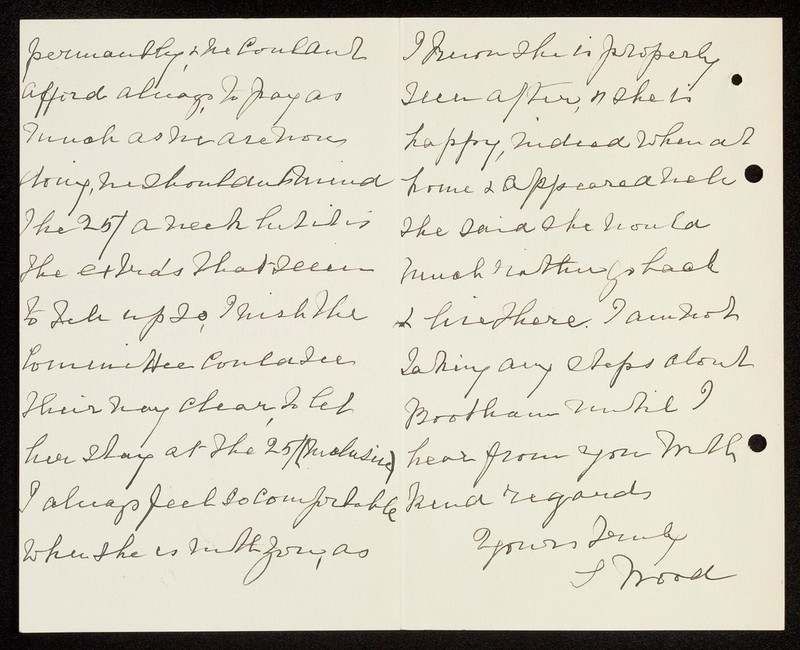 permantly, & he couldnt
afford always, to pay as
much as we are now
doing, we shouldnt mind
the 25/ a week but it is
the extras that seem
to tell up so, I wish the
Committee could see
their way clear, to let
her stay at the 25/ (Inclusive)
I always feel so comfortable
when she is with you, as
I know she is properly
seen after, & she is
happy, indeed when at
home & appeared well
she said she would
much rather go back
& live there. I am not
taking any steps about
Bootham until I
hear from you With
kind regards
Yours truly
S Wood